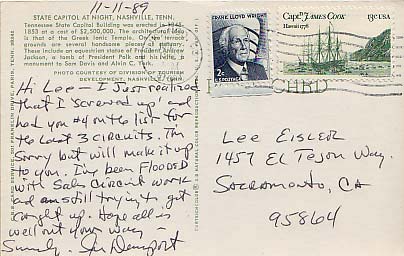 11-11-89
STATE CAPITOL AT NIGHT, NASHVILLE, TENN.
Tennessee State Capitol Building was erected in 1845-
1853 at a cost of $2,500,000. The architectural
is that of the Greek Ionic Temple. On the terraced
grounds are several handsome pieces of statuary.
These include an equestrian statue of President Andrew
Jackson, a tomb of President Polk and his wife, a
monument to Sam Davis and Alvin C. York.
PHOTO COURTESY OF DIVISION OF TOURISM
DEVELOPMENT, NASHVILLE, TENN.
Hi Lee - I just realized
that I 'screwed up' and
had you #4 on the list for
the last 3 circuits. I'm
sorry but will make it up
to you. I've been FLOODED
with Sales Circuit work
and am still trying to get
caught up. Hope all is
well out your way -
Sincerely, Jim Davenport
FRANK LLOYD WRIGHT
2¢
U.S. POSTAGE
Capt. JAMES COOK
Hawaii 1778
13c USA
Lee Eisler
1457 El Tejon Way.
Sacramento, CA
95864